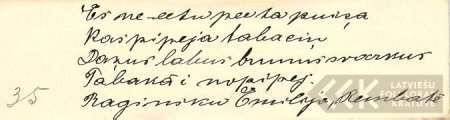 Es ne-eetu pee ta puiša
Kas pipeja tabaciņ
Dažus labus brunus svarkus
Tabakā i nopipej.
35 Raginsku Emilija, Rembatē
LATVIEŠU
FOLKLORAS
KRĀTUVE